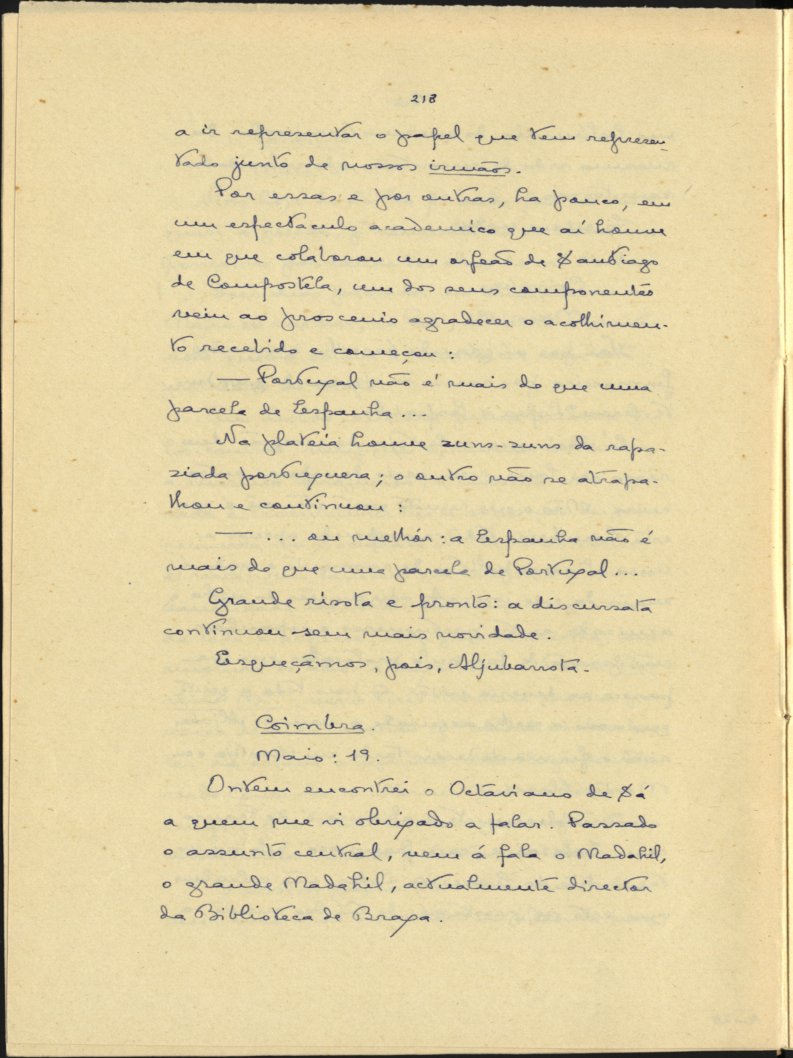 218
a ir representar o papel que tem represen-
tado junto de nossos irmãos.
Por essas e por outras, ha pouco, em
um espectaculo academico que aí houve
em que colaborou um orfeão de Santiago
de Compostela, um dos seus componentes
veiu ao proscenio agradecer o acolhimen-
to recebido e começou:
— Portugal não é mais do que uma
parcela de Espanha...
Na plateia houve zuns-zuns da rapa-
ziada portugueza; o outro não se atrapa-
lhou e continuou:
— ... ou melhór: a Espanha não é
mais do que uma parcela de Portugal...
Grande risota e pronto: a discursata
continuou sem mais novidade.
Esqueçâmos, pois, Aljubarrota.
Coimbra.
Maio: 19.
Ontem encontrei o Octaviano de Sá
a quem me vi obrigado a falar. Passado
o assunto central, vem á fala o Madahil,
o grande Madahil, actualmente director
da Biblioteca de Braga.